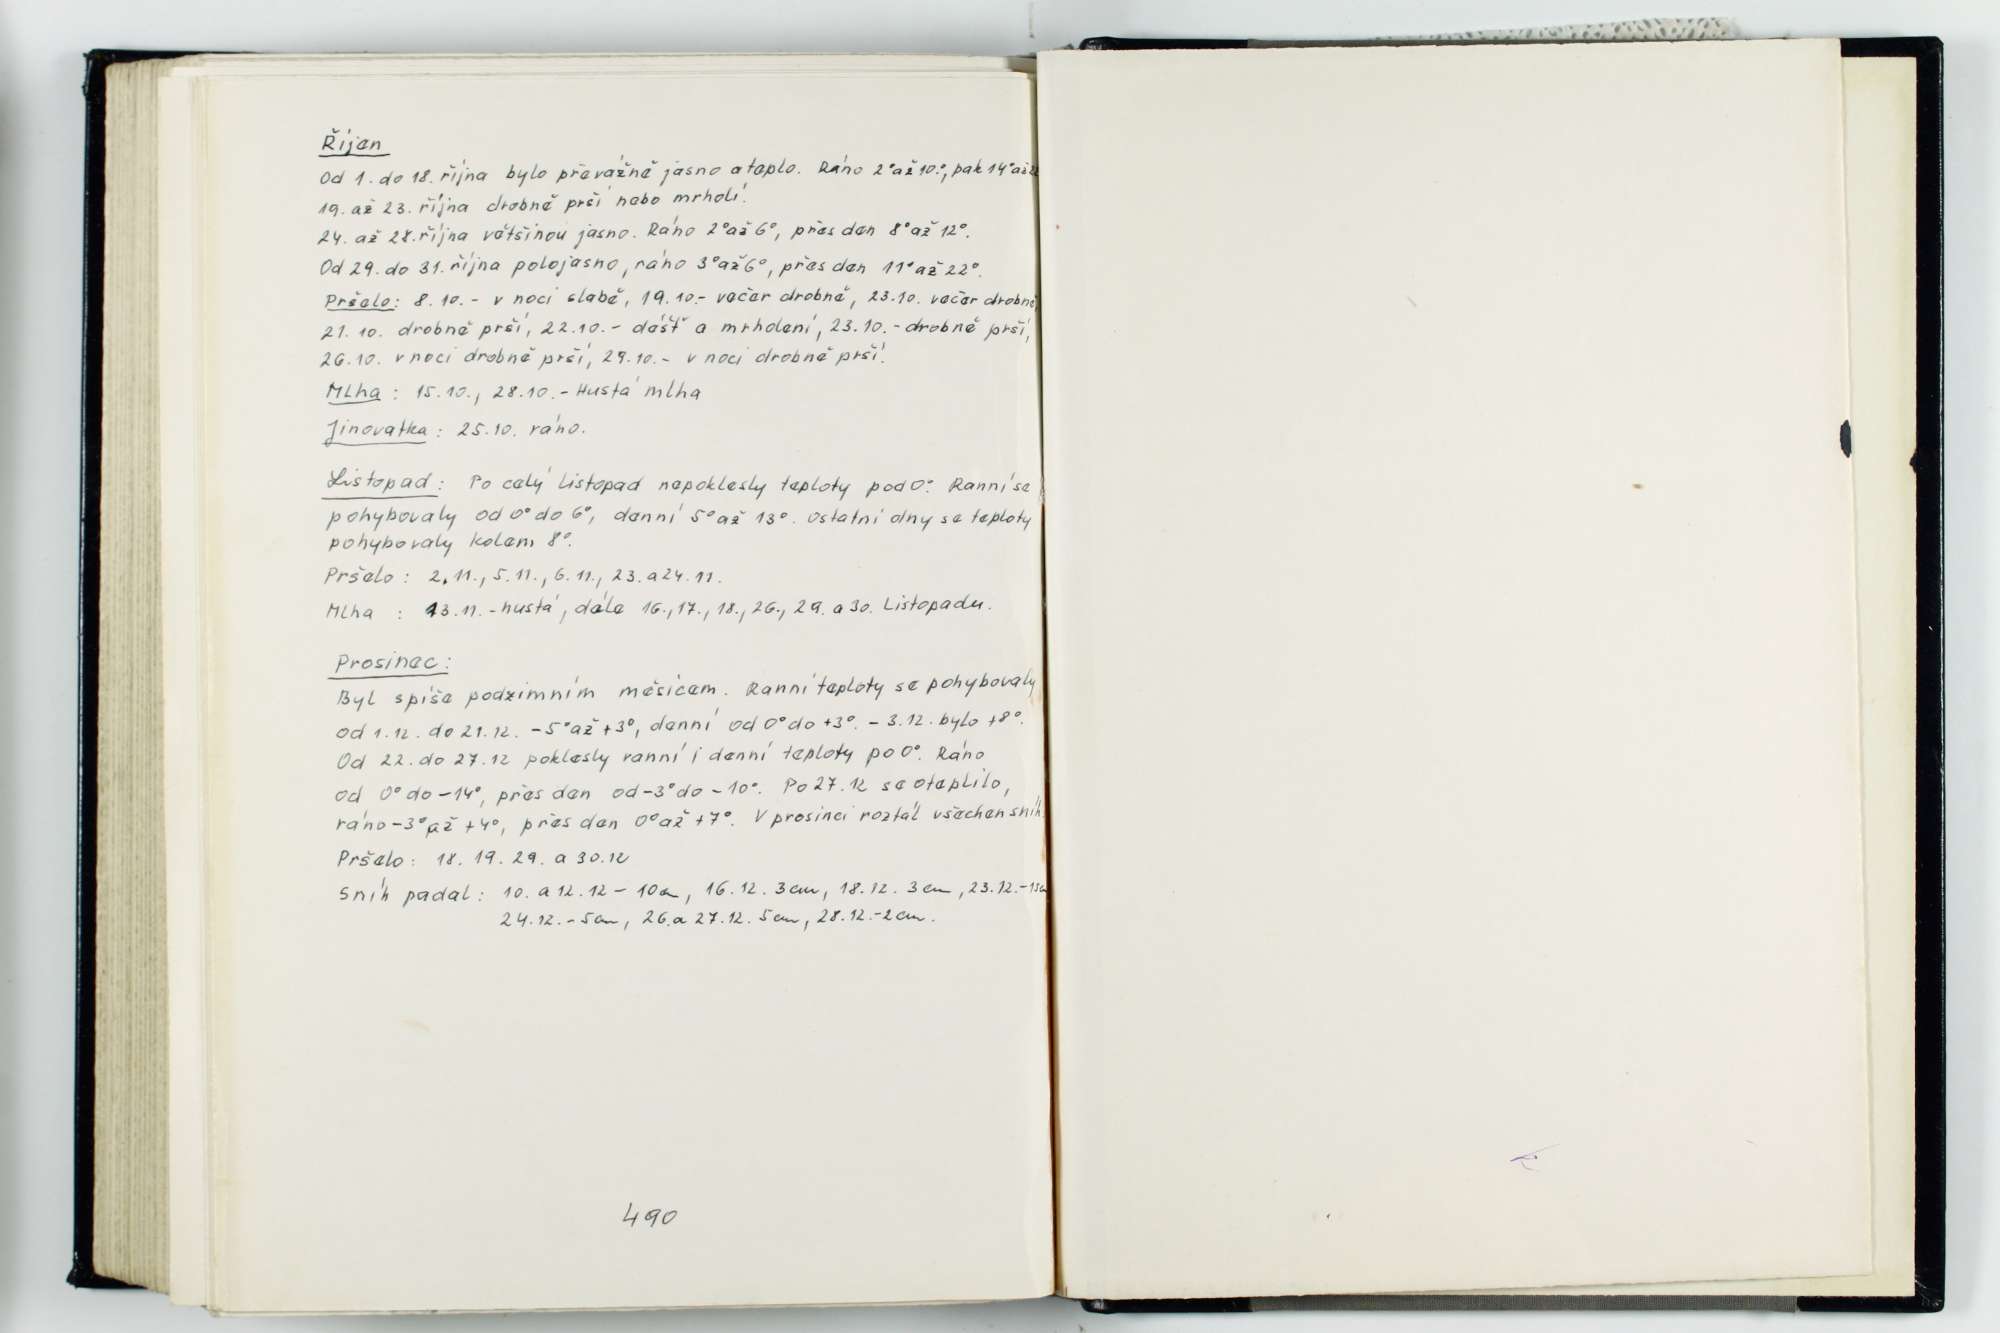 Říjen
Od 1. do 18. října bylo převážně jasno a teplo. Ráno 2° až 10.°, pak 14° až
19. až 23. října drobně prší nebo mrholí.
24. až 28. října většinou jasno. Ráno 2° až 6°, přes den 8° až 12°.
Od 29. do 31. října polojasno, ráno 3° až 6°, přes den 11° až 22°.
Pršelo: 8.10. - v noci slabě, 19.10.- večer drobně, 23.10. večer drobně,
21.10. drobně prší, 22.10. - déšť a mrholení, 23.10. - drobně prší,
26.10. v noci drobně prší, 29.10. - v noci drobně prší.
Mlha : 15.10., 28.10. - Hustá mlha
Jinovatka : 25.10. ráno.
Listopad : Po celý listopad nepoklesly teploty pod 0°. Ranní se
pohybovaly od 0° do 6°, denní 5° až 13°. Ostatní dny se teploty
pohybovaly kolem 8°.
Pršelo : 2.11., 5.11., 6.11., 23. a 24.11.
Mlha : 13.11. - hustá, dále 16., 17., 18., 26., 29. a 30. Listopadu.
Prosinec :
Byl spíše podzimním měsícem. Ranní teploty se pohybovaly
od 1.12. do 21.12. -5° až +3°, denní od 0° do +3°. - 3.12. bylo +8°.
Od 22. do 27.12 poklesly ranní i denní teploty po 0°. Ráno
od 0° do -14°, přes den od -3° do -10°. Po 27.12 se oteplilo,
ráno -3° až +4°, přes den 0° až +7°. V prosinci roztál všechen sníh.
Pršelo : 18. 19. 29. a 30.12
Sníh padal : 10. a 12.12 - 10cm, 16.12. 3cm, 18.12. 3cm, 23.12.-
24.12. - 5cm, 26. a 27.12. 5cm, 28.12. - 2cm.
490